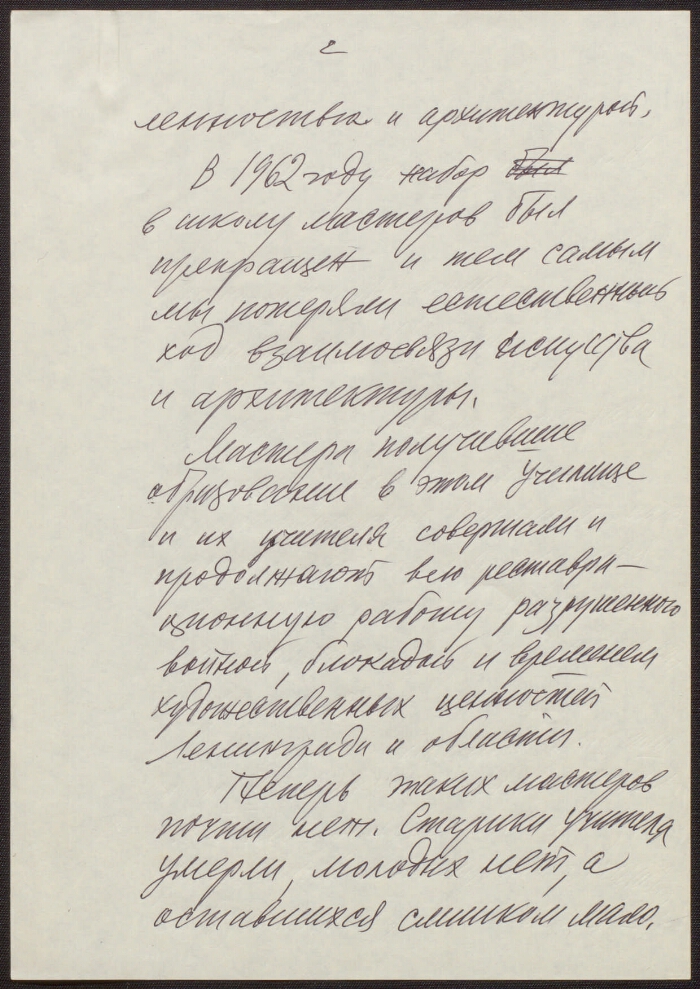 2
ленностью и архитектурой.
В 1962 году набор был
в школу мастеров был
прекращен и тем самым
мы потеряли естественный
ход взаимосвязи искусства
и архитектуры.
Мастера получившие
образование в этом Училище
и их учителя совершали и
продолжают всю реставра-
ционную работу разрушенного
войной, блокадой и временем
художественных ценностей
Ленинграда и области.
Теперь таких мастеров
почти нет. Старики учителя
умерли, молодых нет, а
оставшихся слишком мало.